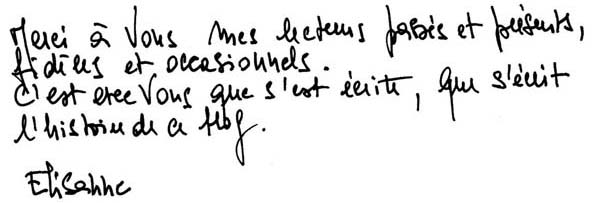 Merci à Vous mes lecteurs passés et présents,
fidèles et occasionnels.
C'est avec Vous que s'est écrite, que s'écrit
l'histoire de ce blog.
Elisanne